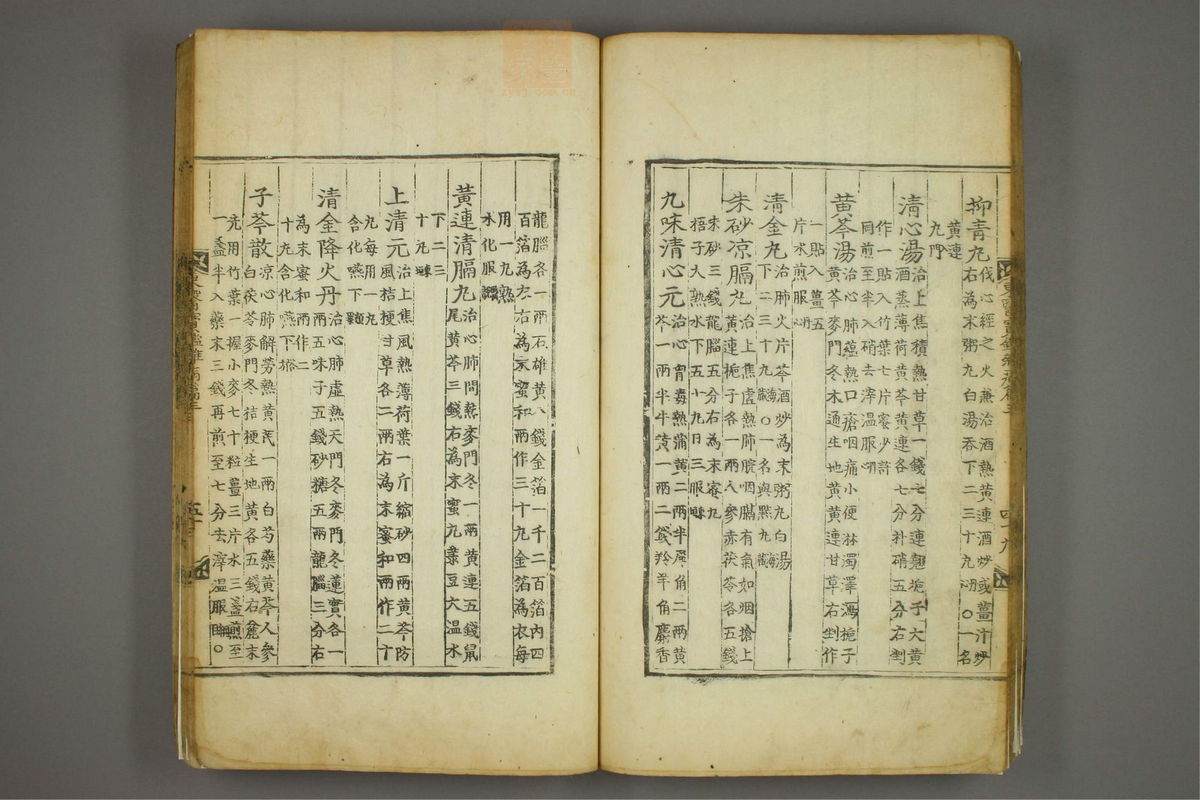 抑青丸伐心經之火兼治酒熱黃連酒炒或薑汁炒
右為末粥丸白湯吞下二三十丸○一名
黃連
丸
清心湯治上焦積熱甘草一錢七分連翹梔子大黃
酒蒸薄荷黃芩黃連各七分朴硝五分右剉
作一貼入竹葉七片蜜少許
同煎至半入硝去滓溫服
黃芩湯治心肺蘊熱口瘡咽痛小便淋濁澤瀉梔子
黃芩麥門冬木通生地黃黃連甘草右剉作
一貼入薑五
片水煎服
清金丸治肺火片芩酒炒為末粥丸白湯
下二三十丸○一名與點丸
朱砂涼膈丸治上焦虛熱肺脘咽膈有氣如烟搶上
黃連梔子各一兩人參赤茯苓各五錢
朱砂三錢龍腦五分右為末蜜丸
梧子大熟水下五十丸日三服
九味清心元治心胷毒熱蒲黃二兩半犀角二兩黃
芩一兩半牛黃一兩二錢羚羊角麝香
龍腦各一兩石雄黃八錢金箔一千二百箔內四
百箔為衣右為末蜜和兩作三十丸金箔為衣每
用一丸熟
水化服
黃連清膈丸治心肺間熱麥門冬一兩黃連五錢鼠
尾黃芩三錢右為末蜜丸菉豆大溫水
下二三
十丸
上清元治上焦風熱薄荷葉一斤縮砂四兩黃芩防
風桔梗甘草各二兩右為末蜜和兩作二十
丸每用一丸
含化嚥下
清金降火丹治心肺虛熱天門冬麥門冬蓮實各一
兩五味子五錢砂糖五兩龍腦三分右
為末蜜和兩作二
十丸含化嚥下
子芩散涼心肺解勞熱黃芪一兩白芍藥黃芩人參
白茯苓麥門冬桔梗生地黃各五錢右麁末
先用竹葉一握小麥七十粒薑三片水三盞煎至
一盞半入藥末三錢再煎至七分去滓溫服○